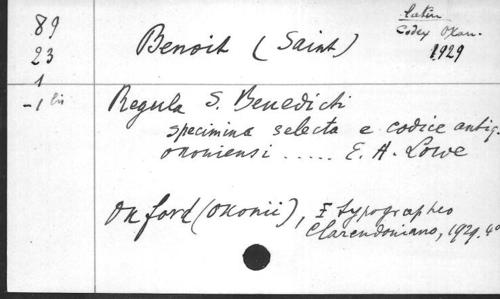 89
23
1
-1 bis
Latin
Codex Oxon.
1929
Benoit (Saint)
Regula S. Benedicti
specimina selecta e codice antiq.
oxoniensi ..... E. A. Lowe
Oxford (Oxonii), E typographeo
Clarendoniano, 1929. 4°